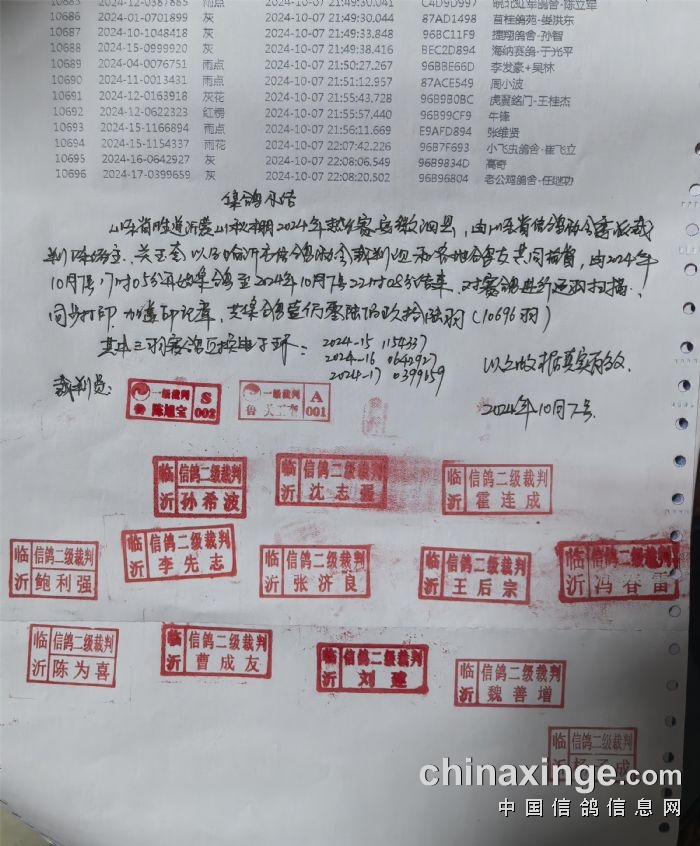 10685 2024-12-0387885 雨点 2024-10-07 21:49:29.041 C4D9D997 皖北虹军鸽舍-陈立军
10686 2024-01-0701899 灰 2024-10-07 21:49:30.044 87AD1498 首桂鸽苑-娄洪东
10687 2024-10-1048418 灰 2024-10-07 21:49:33.848 96BC11F9 捷翔鸽舍-孙智
10688 2024-15-0999920 灰 2024-10-07 21:49:38.416 BEC2D894 海纳赛鸽-于光平
10689 2024-04-0076751 雨点 2024-10-07 21:50:27.267 96BBE66D 李发豪+吴林
10690 2024-11-0013431 雨点 2024-10-07 21:51:12.957 87ACE549 周小波
10691 2024-12-0163918 灰花 2024-10-07 21:55:43.728 96B9B0BC 虎翼銘门-王桂杰
10692 2024-12-0622323 红楞 2024-10-07 21:55:57.440 96B99CF9 牛锋
10693 2024-15-1166894 雨点 2024-10-07 21:56:11.669 E9AFD894 张维贤
10694 2024-15-1154337 雨花 2024-10-07 22:07:42.226 96B7F693 小飞虫鸽舍-崔飞立
10695 2024-16-0642927 灰 2024-10-07 22:08:06.549 96B9834D 高奇
10696 2024-17-0399659 灰 2024-10-07 22:08:20.502 96B96804 老公鸡鸽舍-任继功
集鸽小结
山东省临沂沂蒙山秋棚2024年 赛 泗县，由山东省信鸽协会委派裁
判陈旭宝、关玉奎以及临沂市信鸽协会裁判组和各地鸽友共同监督，由2024年
10月7号17时05分开始集鸽至2024年10月7号22时08分结束，对赛鸽进行逐羽扫描，
同步打印，加盖印记章，共集鸽壹万零陆佰玖拾陆羽（10696羽）
其中三羽赛鸽更换电子环：2024-15 1154337
2024-16 0642927
2024-17 0399659
以上收据真实有效.
裁判员：
2024年10月7号.
一级裁判 S
鲁 陈旭宝 002
一级裁判 A
鲁 关玉奎 001
临沂 信鸽二级裁判 孙希波
临沂 信鸽二级裁判 沈志
临沂 信鸽二级裁判 霍连成
临沂 信鸽二级裁判 鲍利强
临沂 信鸽二级裁判 李先志
临沂 信鸽二级裁判 张济良
临沂 信鸽二级裁判 王后宗
临沂 信鸽二级裁判 冯春雷
临沂 信鸽二级裁判 陈为喜
临沂 信鸽二级裁判 曹成友
临沂 信鸽二级裁判 刘建
临沂 信鸽二级裁判 魏善增
临沂 信鸽二级裁判 杨子成
chinaxinge.com
中国信鸽信息网